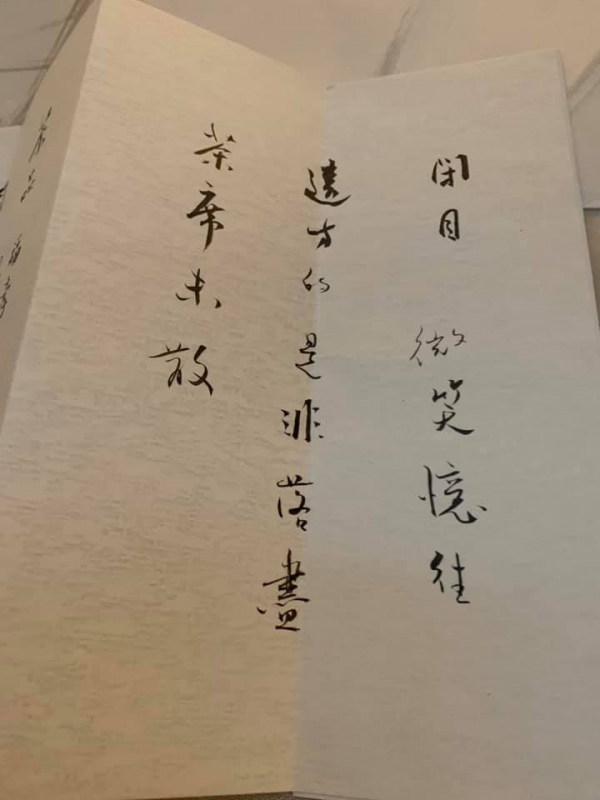 閑目 微笑憶往
遠方的是非落盡
茶席未散